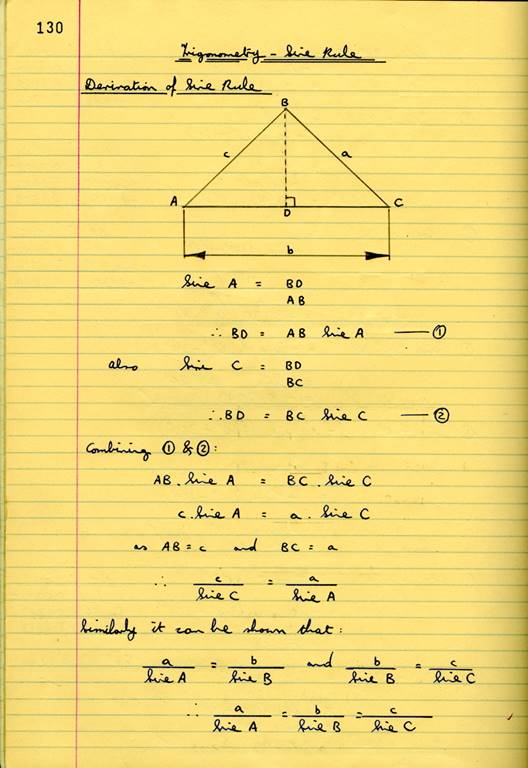 130
Trigonometry - Sine Rule
Derivation of Sine Rule
B
c a
A D C
b
Sine A = BD
AB
∴ BD = AB Sine A —— ①
also Sine C = BD
BC
∴ BD = BC Sine C —— ②
Combining ① & ②:
AB . Sine A = BC . Sine C
c . Sine A = a . Sine C
as AB = c and BC = a
∴ c / Sine C = a / Sine A
Similarly it can be shown that:
a / Sine A = b / Sine B and b / Sine B = c / Sine C
∴ a / Sine A = b / Sine B = c / Sine C